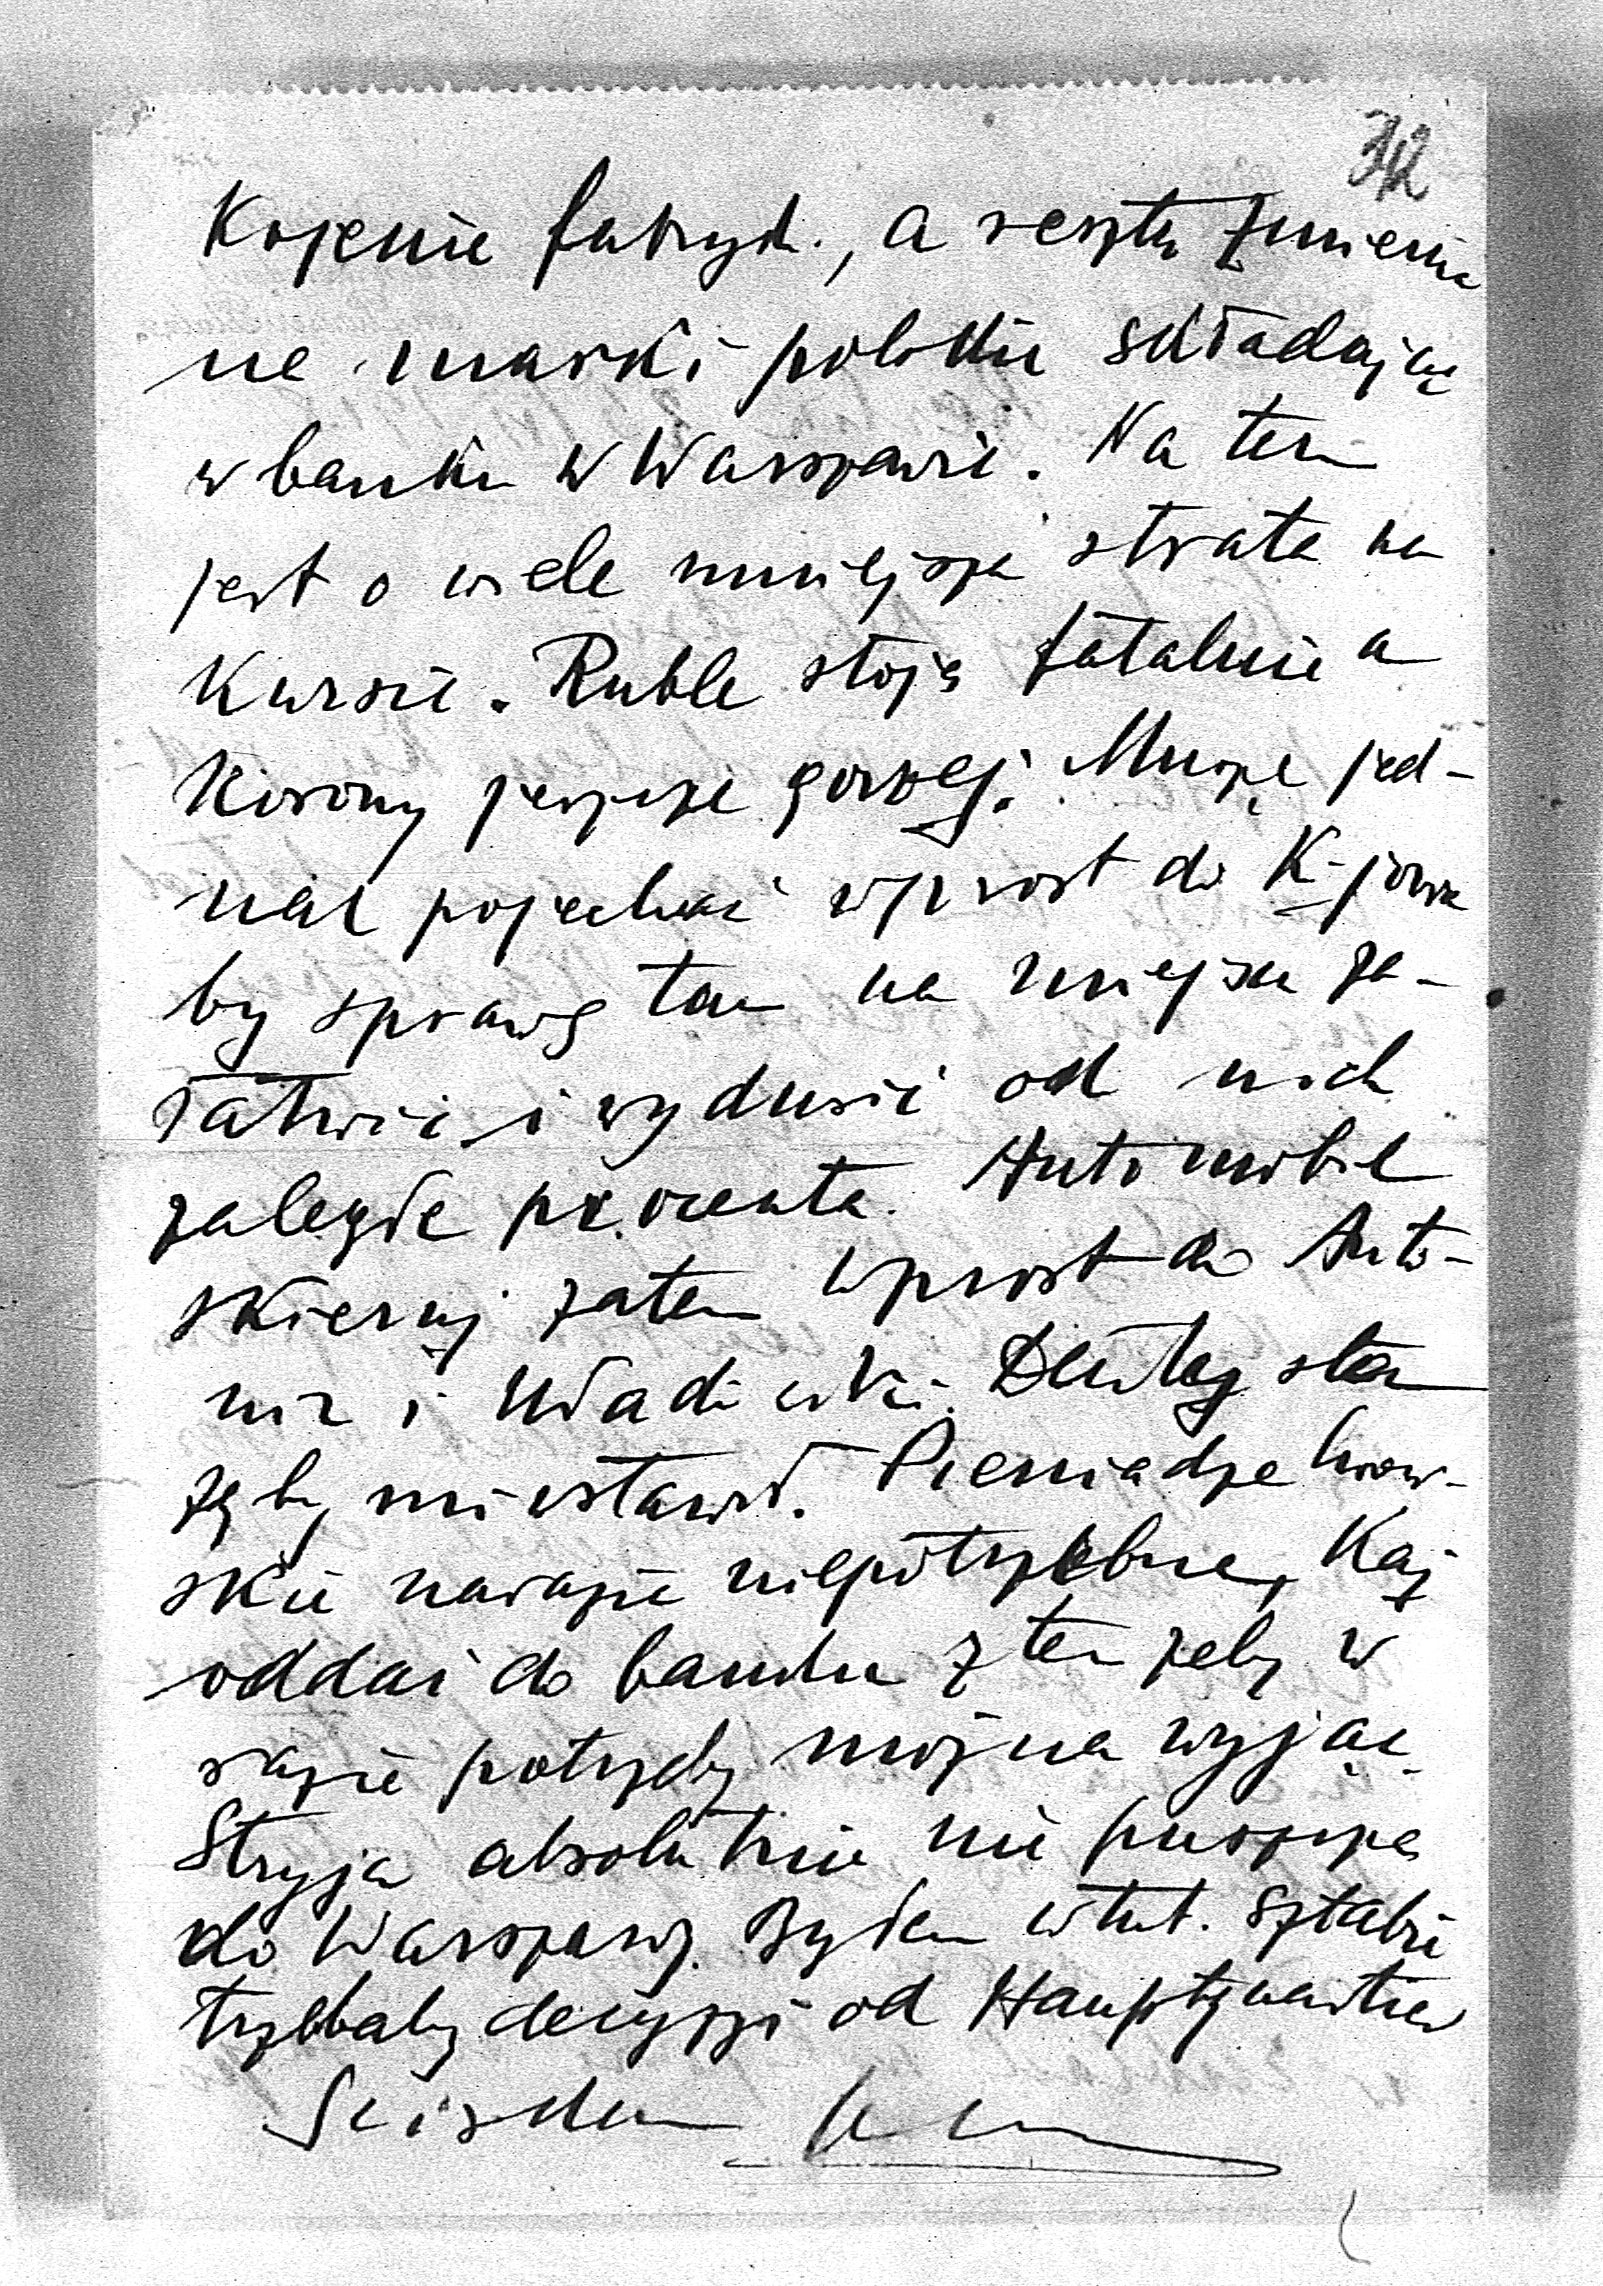 32
kojenie fabryk., a resztę zmienia
ne marki polskie składając
w banku w Warszawie. Na tem
jest o wiele mniejsza strata na
kursie. Ruble stoją fatalnie a
korony jeszcze gorzej. Muszę jed-
nak pojechać wprost do K-jowa
by sprawę tam na miejscu za-
łatwić i wydusić od nich
zaległe procenta. Automobil
skieruj zatem wprost do Anto-
nin i Uładówki. Dentysta
zęby mi wstawił. Pieniądze lwow-
skie narazie niepotrzebne, każ
oddać do banku z tem żeby w
razie potrzeby można wyjąć.
Stryja absolutnie nie puszczą
do Warszawy. Byłem w tut. sztabie
trzebaby decyzji od Hauptquartier
Ściskam